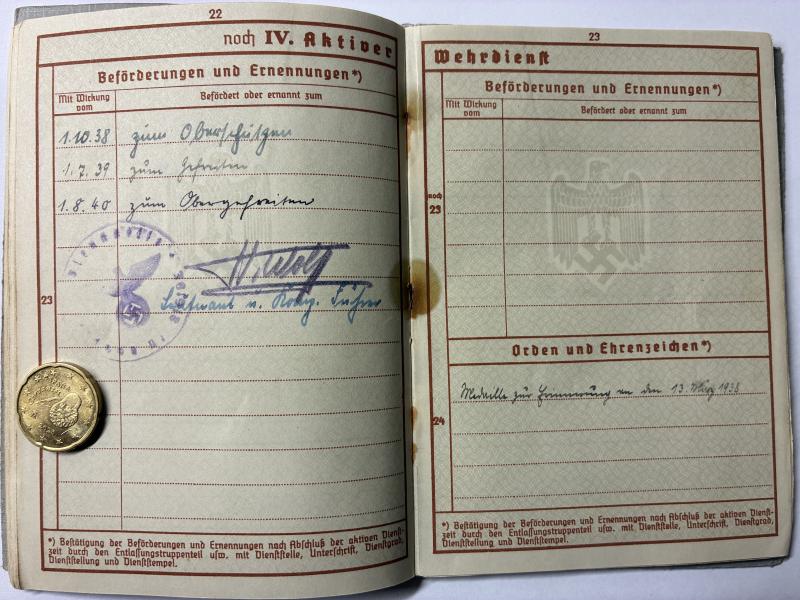 22
noch IV. Aktiver
Beförderungen und Ernennungen*)
Mit Wirkung vom
Befördert oder ernannt zum
1.10.38 zum Oberschützen
1.7.39 zum Gefreiten
1.8.40 zum Obergefreiten
23
Leutnant u. Komp. Führer
*) Bestätigung der Beförderungen und Ernennungen nach Abschluß der aktiven Dienst-
zeit durch den Entlassungstruppenteil usw. mit Dienststelle, Unterschrift, Dienstgrad,
Dienststellung und Dienststempel.
23
Wehrdienst
Beförderungen und Ernennungen*)
Mit Wirkung vom
Befördert oder ernannt zum
noch
23
Orden und Ehrenzeichen*)
Medaille zur Erinnerung an den 13. März 1938
24
*) Bestätigung der Beförderungen und Ernennungen nach Abschluß der aktiven Dienst-
zeit durch den Entlassungstruppenteil usw. mit Dienststelle, Unterschrift, Dienstgrad,
Dienststellung und Dienststempel.